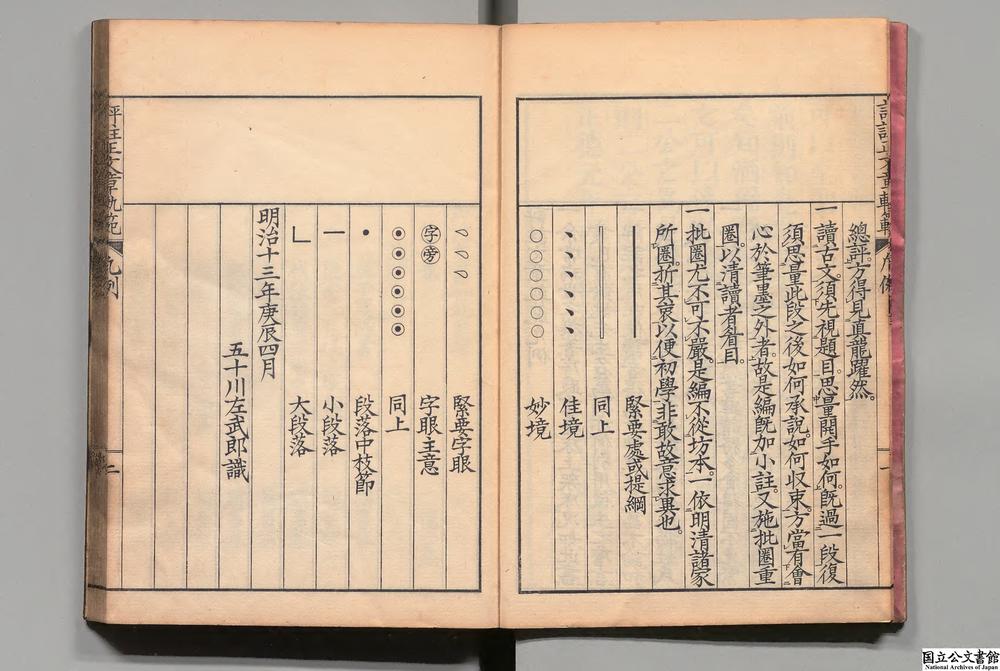 總評。方得見真龍躍然。
一讀古文。須先視題目。思量開手如何。既過一段復
須思量此段之後如何承說。如何収束。方當有會
心於筆墨之外者。故是編既加小註。又施批圈重
圈。以清讀者眉目。
一批圈尤不可不嚴。是編不從坊本。一依明清諸家
所圈。折其衷以便初學。非敢故意求異也。
緊要處或提綱
同上
、、、、、 佳境
○○○○○○ 妙境
緊要字眼
字旁 字眼主意
◉◉◉◉◉◉ 同上
• 段落中枝節
一 小段落
∟ 大段落
明治十三年庚辰四月
五十川左武郎識
評註正文章軌範
凡例
二
国立公文書館
National Archives of Japan